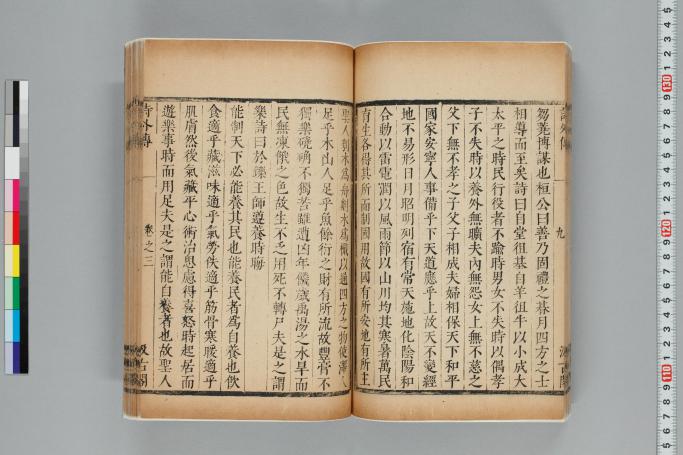 詩外傳 九 汲古閣
芻蕘博謀也桓公曰善乃固禮之朞月四方之士
相導而至矣詩曰自堂徂基自羊徂牛以小成大
太平之時民行役者不踰時男女不失時以偶孝
子不失時以養外無曠夫內無怨女上無不慈之
父下無不孝之子父子相成夫婦相保天下和平
國家安寧人事備乎下天道應乎上故天不變經
地不易形日月昭明列宿有常天施地化陰陽和
合動以雷電潤以風雨節以山川均其寒暑萬民
育生各得其所而制國用故國有所安地有所主
聖人刳木爲舟剡木爲檝以通四方之物使澤人
足乎木山人足乎魚餘衍之財有所流故豐膏不
獨樂磽确不獨苦雖遭凶年饑歲禹湯之水旱而
民無凍餓之色故生不乏用死不轉尸夫是之謂
樂詩曰於鑠王師遵養時晦
能制天下必能養其民也能養民者爲自養也飲
食適乎藏滋味適乎氣勞佚適乎筋骨寒暖適乎
肌膚然後氣藏平心術治思慮得喜怒時起居而
遊樂事時而用足夫是之謂能自養者也故聖人
詩外傳 卷之三 汲古閣